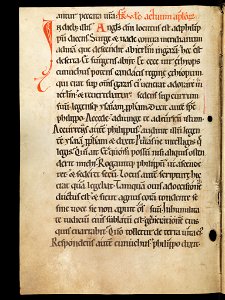 In diebus illis. Angelus domini locutus est ad philippum
dicens. Surge & uade contra meridianum
ad uiam que descendit ab ierusalem in gazam. hec est
deserta. Et surgens abiit. Et ecce uir ethyops
eunuchus potens candacis regine ethyopum
qui erat super omnes gazas
sedens super currum
suum legensque ysaiam prophetam. Dixit autem spiritus
philippo. Accede & adiunge te ad currum istum.
Accurrens autem philippus audiuit illum legentem
ysaiam prophetam & dixit. Putasne intelligis que
legis. Qui ait. Et quomodo possum nisi aliquis ostenderit
michi. Rogauitque philippum ut ascenderet
& sederet secum. Locus autem scripture
quam legebat. Tamquam ouis ad occisionem
ductus est & sicut agnus coram tondente se
sine uoce sic non aperuit os suum. In humilitate
iudicium eius sublatum est. generationem eius
quis enarrabit. Quoniam tolletur de terra uita eius.
Respondens autem eunuchus philippo dixit.